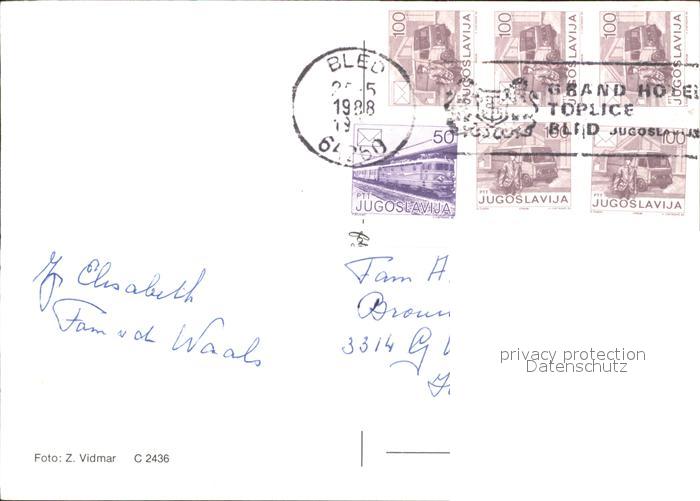 100 100 100
JUGOSLAVIJA JUGOSLAVIJA JUGOSLAVIJA
BLED
1988
64260
GRAND HOTEL
TOPLICE
BLED JUGOSLAVIJA
50
PTT
JUGOSLAVIJA
100
PTT
JUGOSLAVIJA
100
PTT
JUGOSLAVIJA
Elisabeth
Fam v d Waals
Fam A.
3314 G
privacy protection
Datenschutz
Foto: Z. Vidmar C 2436